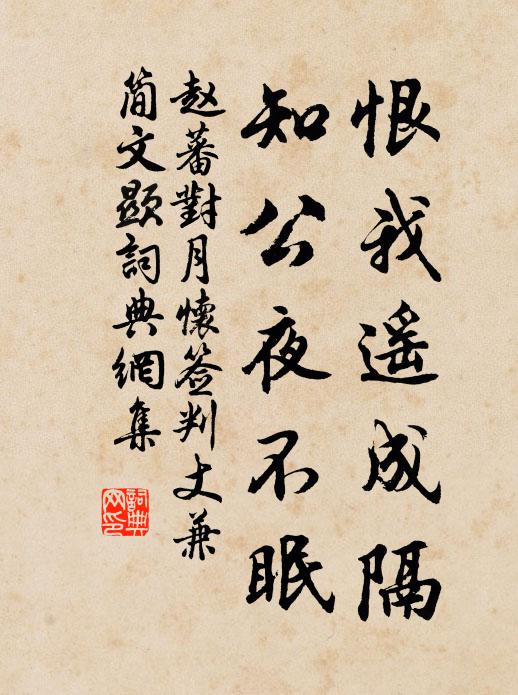 恨我遥成隔
知公夜不眠
赵蕃對月懷簽判丈兼
簡文顯詞典網集
詞典網印